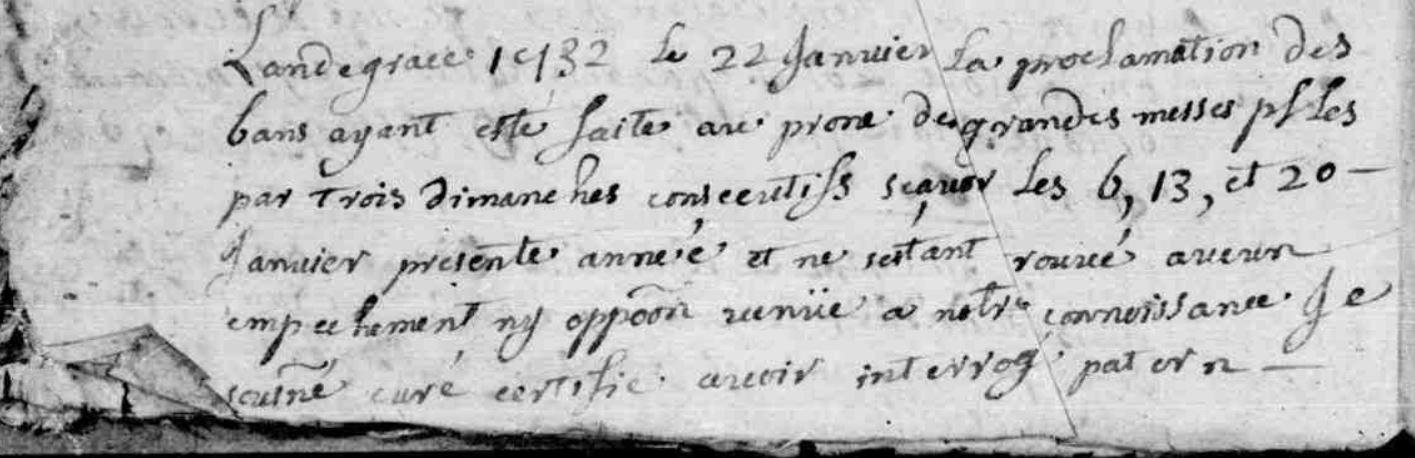 Landegrace 1732 le 22 Januier La proclamation des
bans ayant esté faite au prone des grandes messes ples
par trois dimanches consecutifs sçauor Les 6, 13, et 20 —
Januier presente année et ne sestant trouué aucun
empechement ny oppoõn uenüe a notre connoissance Je
sousñé curé certifie auoir interrog patern —